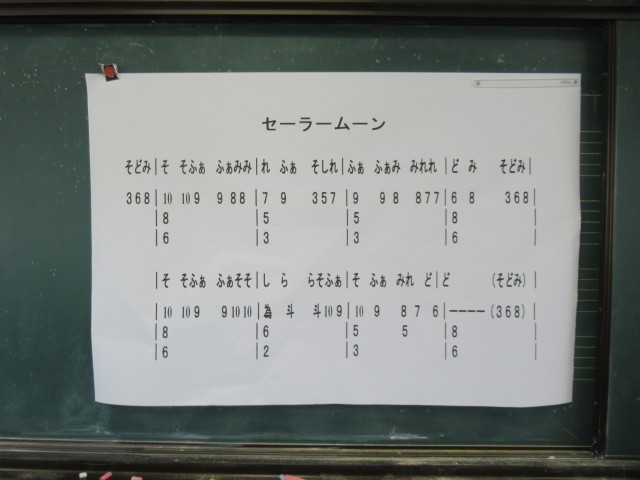 セーラームーン
そどみ|そ そふぁ ふぁみみ|れ ふぁ そしれ|ふぁ ふぁみ みれれ|ど み そどみ|
368|10 109 988|7 9 357|9 98 877|6 8 368|
|8 |5 |5 |8 |
|6 |3 |3 |6 |
|そ そふぁ ふぁそそ|し ら らそふぁ|そ ふぁ みれ ど|ど (そどみ)|
|10 109 91010|為 斗 斗109|10 9 8 7 6|----(368)|
|8 |6 |5 5 |8 |
|6 |2 |3 |6 |